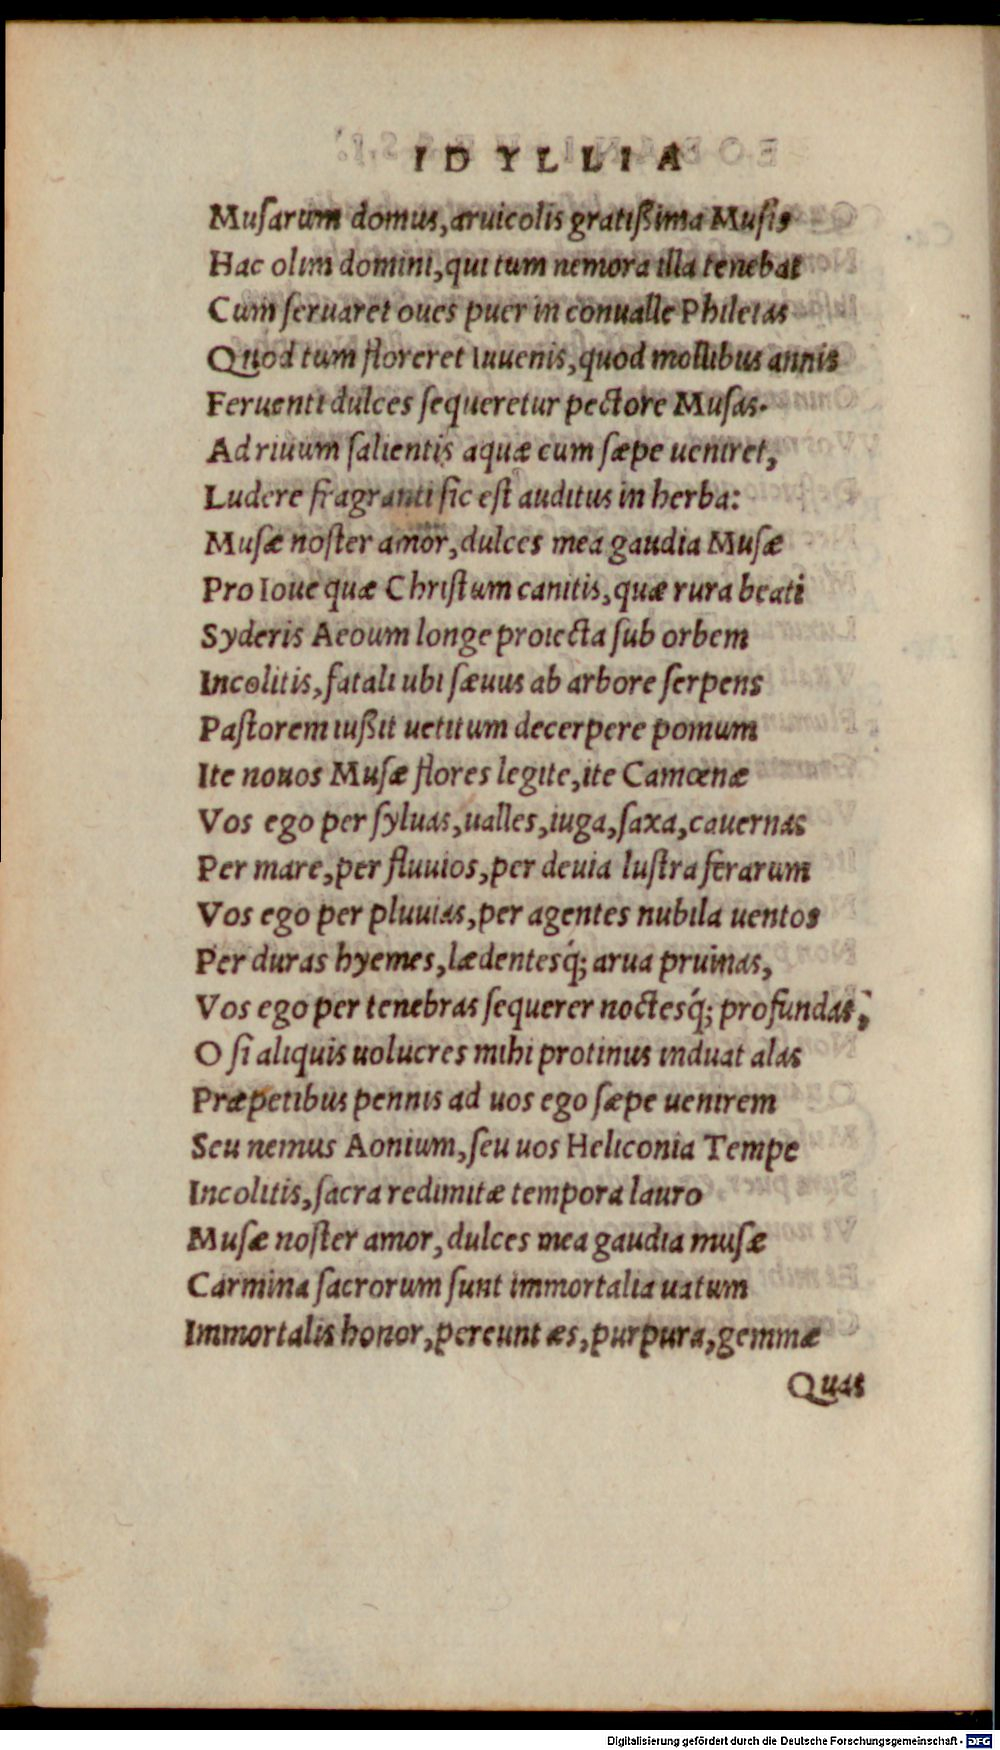 IDYLLIA
Muſarum domus, aruicolis gratißima Muſis
Hac olim domini, qui tum nemora illa tenebat
Cum ſeruaret oues puer in conualle Philetas
Quod tum floreret Iuuenis, quod mollibus annis
Feruenti dulces ſequeretur pectore Muſas.
Ad riuum ſalientis aquæ cum ſæpe ueniret,
Ludere fragranti ſic eſt auditus in herba:
Muſæ noſter amor, dulces mea gaudia Muſæ
Pro Ioue quæ Chriſtum canitis, quæ rura beati
Syderis Aeoum longe proiecta ſub orbem
Incolitis, fatali ubi ſæuus ab arbore ſerpens
Paſtorem iußit uetitum decerpere pomum
Ite nouos Muſæ flores legite, ite Camœnæ
Vos ego per ſyluas, ualles, iuga, ſaxa, cauernas
Per mare, per fluuios, per deuia luſtra ferarum
Vos ego per pluuias, per agentes nubila uentos
Per duras hyemes, lædentesq́; arua pruinas,
Vos ego per tenebras ſequerer noctesq́; profundas,
O ſi aliquis uolucres mihi protinus induat alas
Præpetibus pennis ad uos ego ſæpe uenirem
Seu nemus Aonium, ſeu uos Heliconia Tempe
Incolitis, ſacra redimitæ tempora lauro
Muſæ noſter amor, dulces mea gaudia muſæ
Carmina ſacrorum ſunt immortalia uatum
Immortalis honor, pereunt æs, purpura, gemmæ
Quas
Digitalisierung gefördert durch die Deutsche Forschungsgemeinschaft - DFG